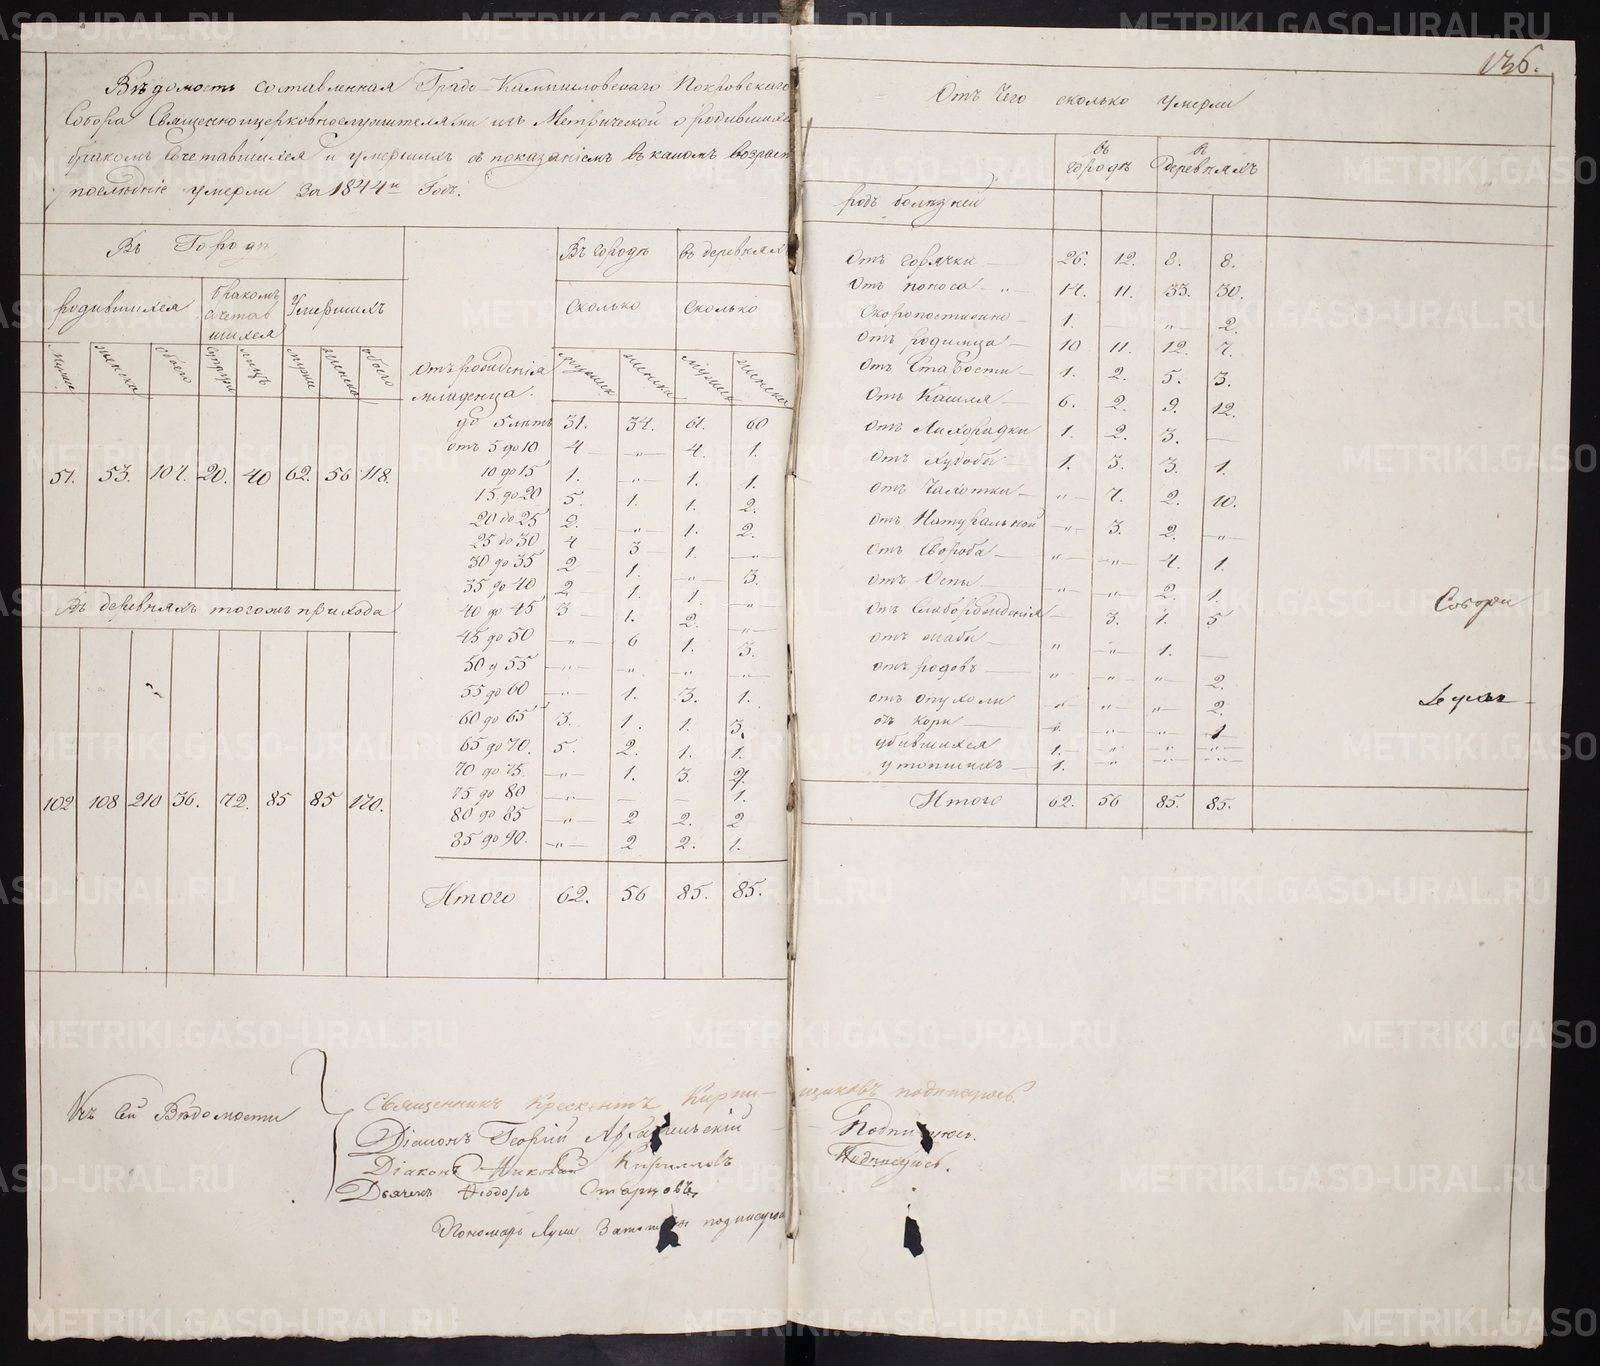 136.
Вѣдомость составленная Градо-Камышловскаго Покровскаго
Собора Священноцерковнослужителями изъ Метрической о родившихся
бракомъ сочетавшихся и умершихъ съ показаніемъ въ какомъ возрасте
послѣдніе умерли За 1844й Годъ.
Въ Городѣ
родившихся бракомъ сочетавшихся Умершихъ
мужеска женска обоего супруж. лицъ мужес женска обоего
51. 53. 104. 20. 40 62. 56 118.
Въ деревняхъ тогожъ прихода
102 108 210 36. 72. 85 85 170.
Въ городѣ въ деревняхъ
Сколько Сколько
мужеск женска мужеск женска
Отъ рожденія
младенца.
до 5 лѣтъ 31. 34. 61. 60
отъ 5 до 10 4 „ 4. 1.
10 до 15 1. „ 1. 1.
15 до 20 5. 1. 1. 2.
20 до 25 2. „ 1. 2.
25 до 30 4 3 1. „
30 до 35 2 1. „ 3.
35 до 40 2 1. 1. „
40 до 45 3 1. 2. „
45 до 50 „ 6 1. 3.
50 у 55 „ „ „ „
55 до 60 „ 1. 3. 1.
60 до 65 3. 1. 1. 3.
65 до 70. 5. 2. 1. 1.
70 до 75. „ 1. 3. 2.
75 до 80 „ — — 1.
80 до 85 „ 2 2. 2
85 до 90. „ 2 2. 1.
Итого 62. 56 85. 85.
Отъ Чего сколько умерли
въ городѣ въ деревняхъ
родъ болѣзней
Отъ горячки 26. 12. 8. 8.
Отъ поноса 14. 11. 33. 30.
Скоропостижно 1. — „ 2.
Отъ родимца 10 11. 12. 7.
Отъ Старости 1. 2. 5. 3.
Отъ Кашля 6. 2. 9. 12.
Отъ Лихорадки 1. 2. 3. —
Отъ худобы 1. 3. 3. 1.
Отъ Чахотки „ 7. 2. 10.
Отъ Натуральной „ 3. 2. „
Отъ Свороба „ „ 4. 1.
Отъ Оспы „ „ 2. 1.
Отъ Слаборожденія — 3. 1. 5
отъ „ „ 1. —
отъ родовъ „ „ „ 2.
отъ опухоли „ „ „ 2.
отъ кори „ „ „ 1
убившихся 1. „ „ „
утопшихъ 1. „ „ „
Итого 62. 56 85. 85.
Къ сей Вѣдомости
Священникъ Крескентъ подписуюсь.
Діаконъ Георгій Подписуюсь.
Діаконъ Николай Кирилловъ Подписуюсь.
Дьячекъ Ѳеодоръ
Пономарь подписуюсь
METRIKI.GASO-URAL.RU